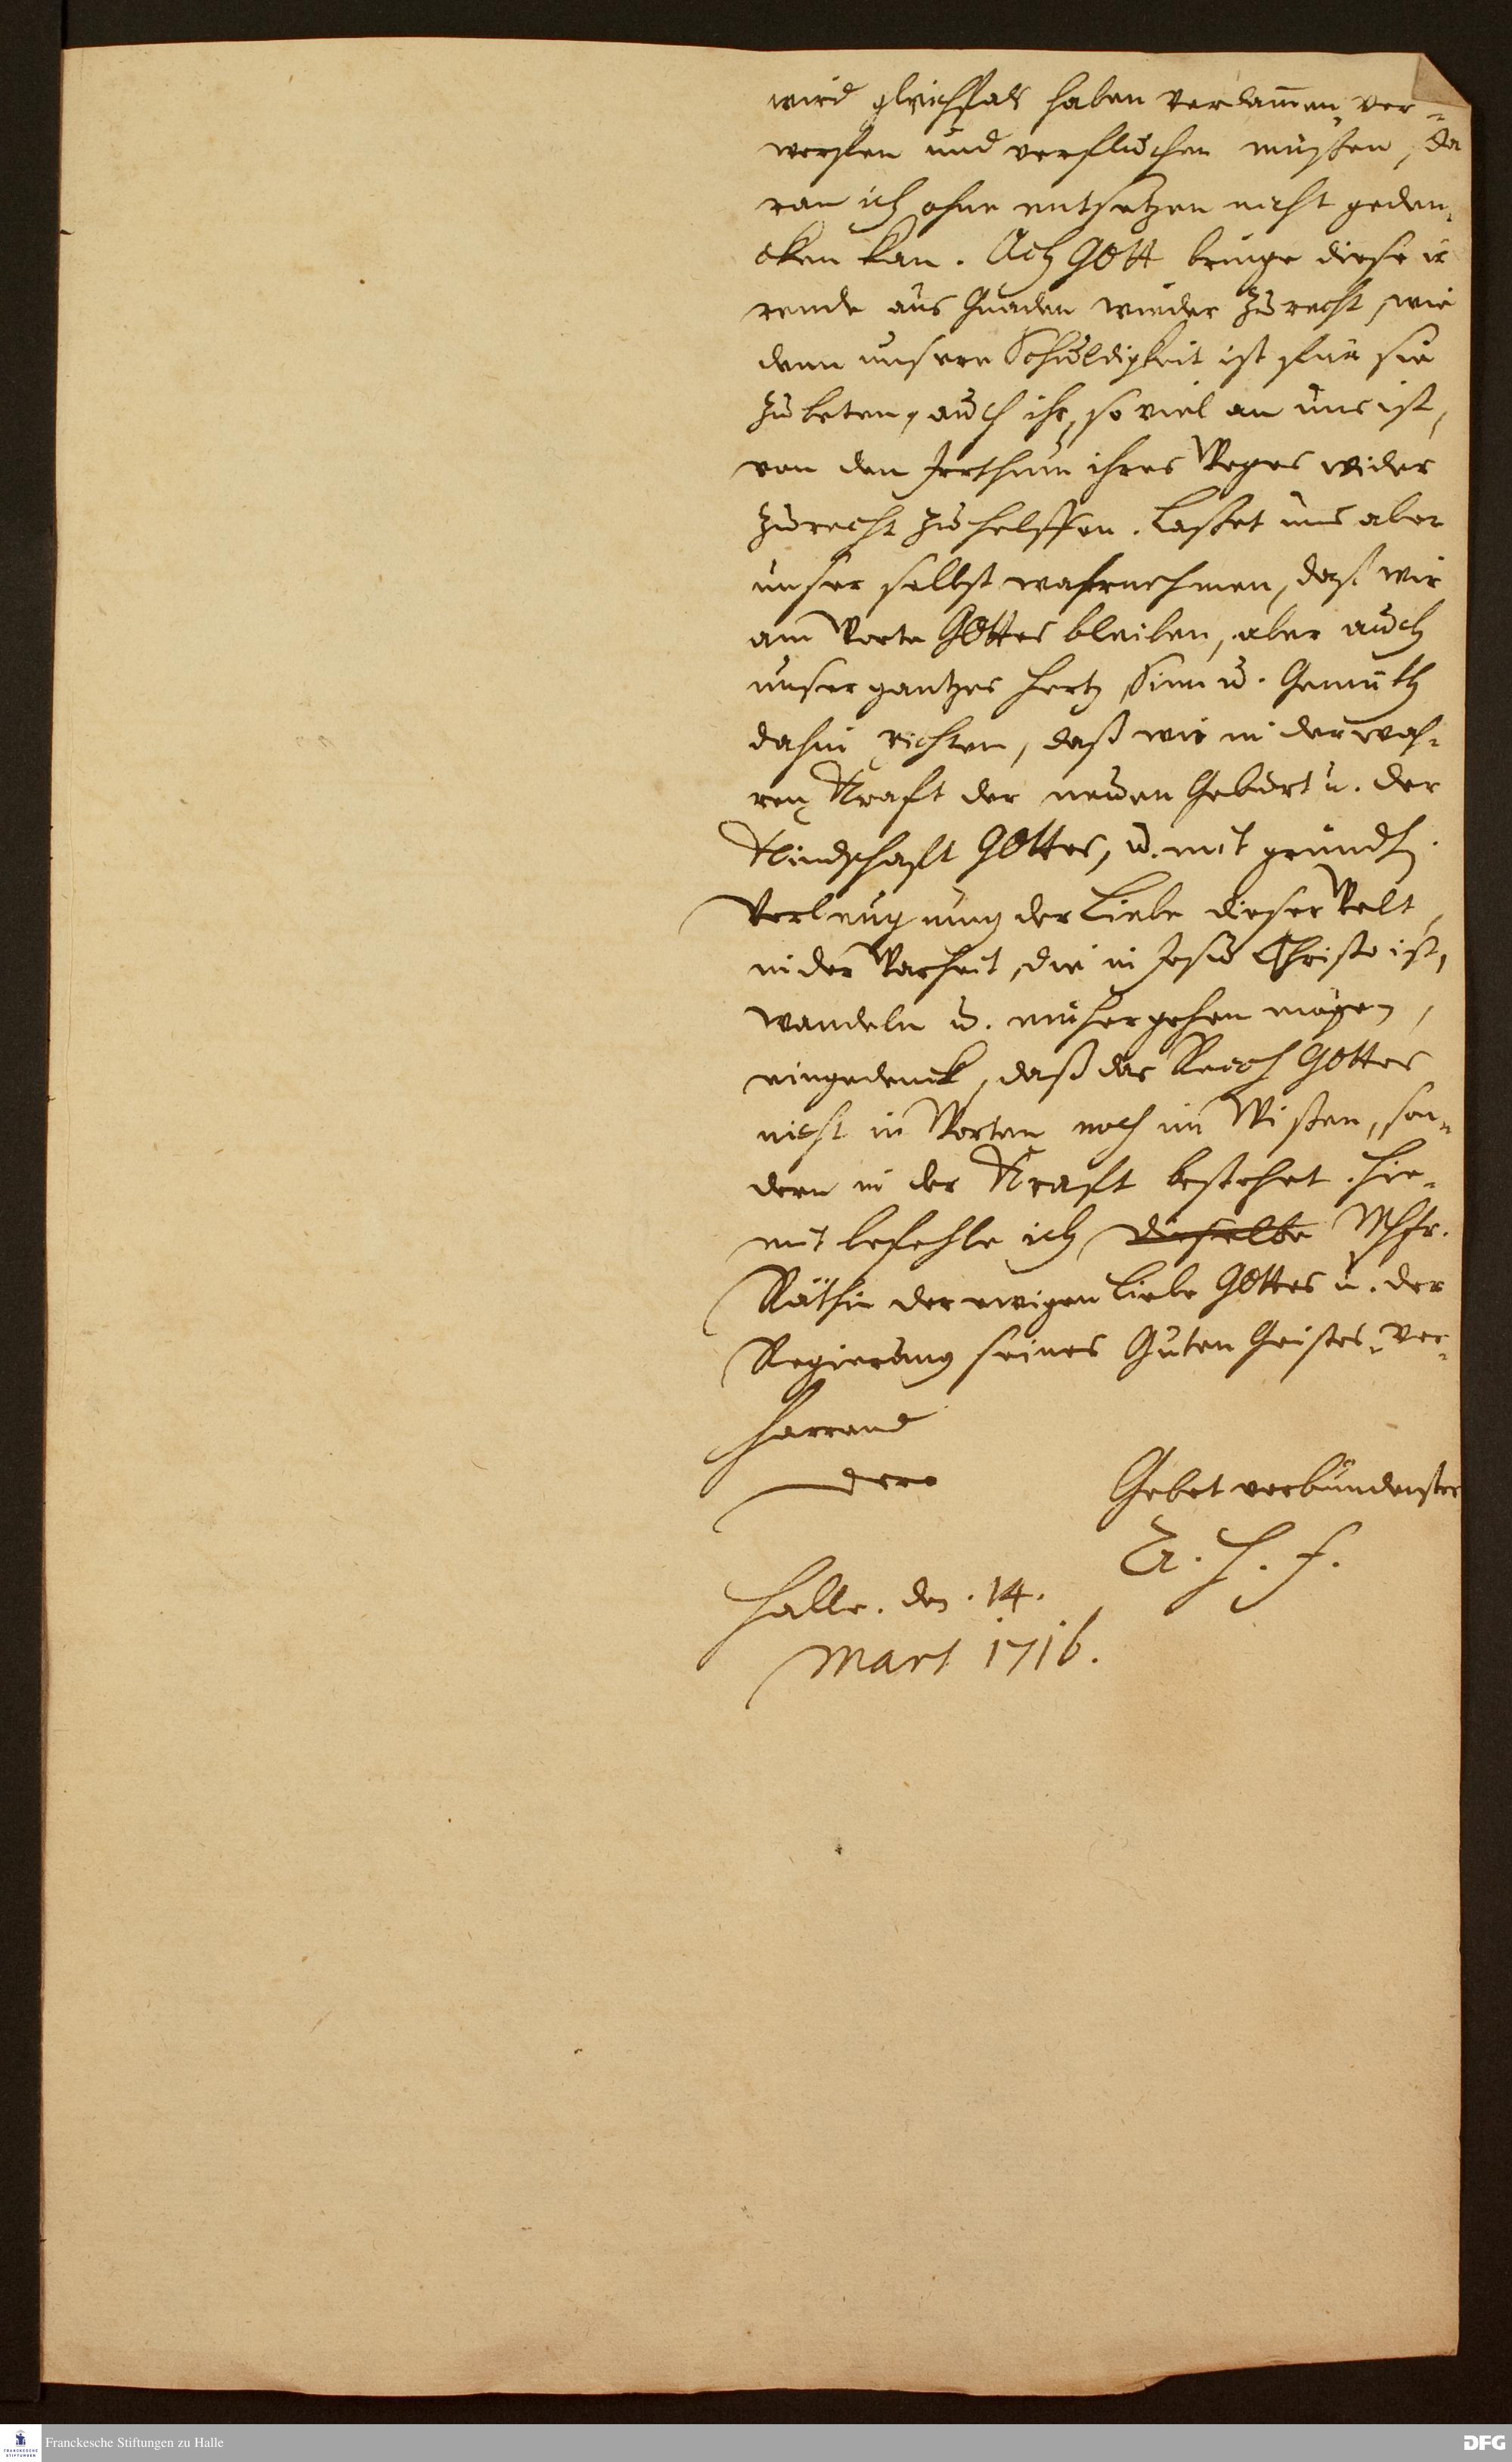 wird gleichfals haben verdam̄en, ver-
werffen und verfluchen müßen, da
ran ich ohne entsetzen nicht geden-
cken kan. Ach GOtt bringe diese ir
rende aus Gnaden wieder zu recht, wie
denn unsere Schuldigkeit ist für sie
zu beten, auch ihr, so viel an uns ist,
von den Irrthum ihres Weges wider
zurecht zu helffen. Laßet uns aber
unser selbst wahrnehmen, daß wir
am Worte GOttes bleiben, aber auch
unser gantzes Hertz Sinn u. Gemüth
dahin richten, daß wir in der wah-
ren Kraft der neuen Geburt u. der
Kindschafft GOttes, u. mit gründl.
Verleugnung der Liebe dieser Welt,
in der Warheit, die in Jesu Christo ist,
wandeln u. einhergehen mögen,
eingedenck, daß das Reich GOttes
nicht in Worten noch im Wißen, son-
dern in der Kraft bestehet. Hie-
mit befehle ich dieselbe Mhfr.
Räthin der ewigen Liebe GOttes u. der
Regierung seines Guten Geistes, ver-
harrend
dero
Gebet verbundenster
A. H. F.
Halle. den. 14.
Mart 1716.
Franckesche Stiftungen zu Halle
DFG